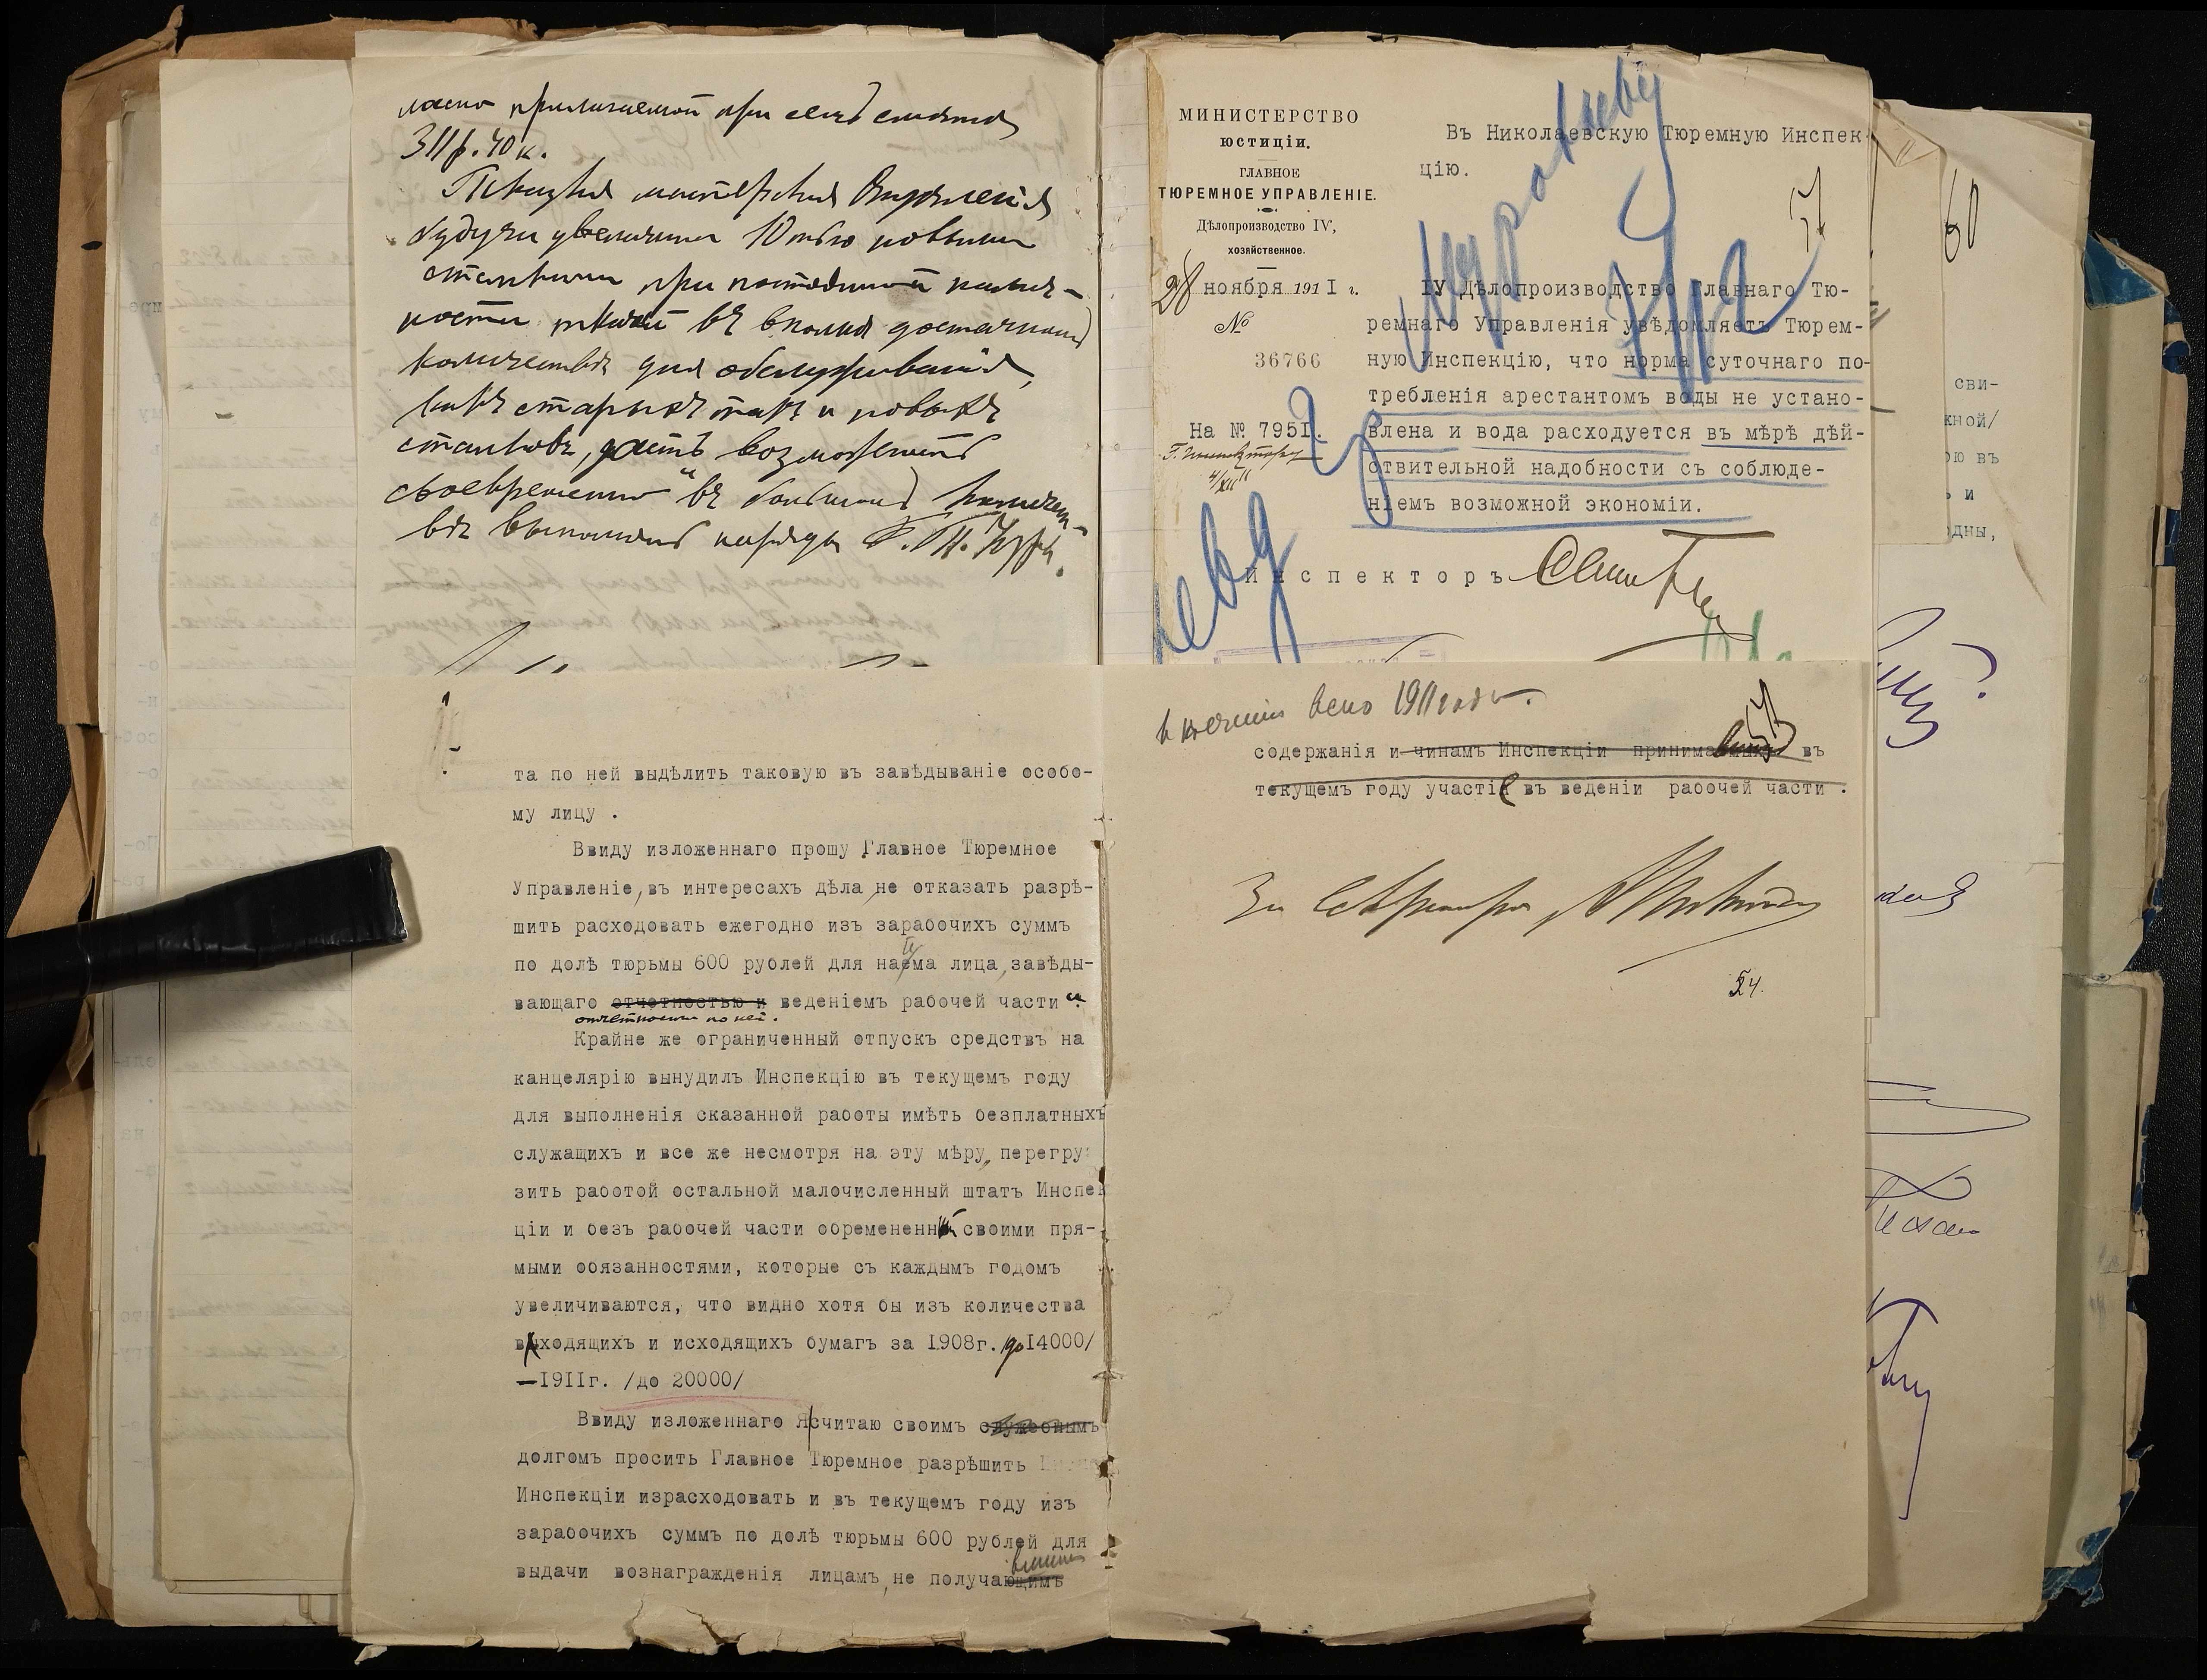 311р. 40к.
будучи увеличена 10тью новыми
станками при
количествѣ для обслуживанія,
какъ старыхъ такъ и новыхъ
станковъ, дастъ возможность
своевременно въ большомъ количест-
вѣ выполнять наряды Г. Т. Упр.
МИНИСТЕРСТВО
ЮСТИЦІИ.
ГЛАВНОЕ
ТЮРЕМНОЕ УПРАВЛЕНІЕ.
Дѣлопроизводство IV,
хозяйственное.
28 ноября 1911 г.
№
36766
На № 7951.
4/XII 11
Въ Николаевскую Тюремную Инспек-
цію.
57
IУ Дѣлопроизводство Главнаго Тю-
ремнаго Управленія увѣдомляетъ Тюрем-
ную Инспекцію, что норма суточнаго по-
требленія арестантомъ воды не устано-
влена и вода расходуется въ мѣрѣ дѣй-
ствительной надобности съ соблюде-
ніемъ возможной экономіи.
Инспекторъ
60
сви-
жной/
ою въ
ь и
одны,
та по ней выдѣлить таковую въ завѣдываніе особо-
му лицу .
Ввиду изложеннаго прошу Главное Тюремное
Управленіе, въ интересахъ дѣла, не отказать разрѣ-
шить расходовать ежегодно изъ зарабочихъ суммъ
по долѣ тюрьмы 600 рублей для наема лица, завѣды-
вающаго отчетностью и веденіемъ рабочей части и
отчетностью по ней.
Крайне же ограниченный отпускъ средствъ на
канцелярію вынудилъ Инспекцію въ текущемъ году
для выполненія сказанной работы имѣть безплатныхъ
служащихъ и все же несмотря на эту мѣру, перегру-
зить работой остальной малочисленный штатъ Инспек
ціи и безъ рабочей части обремененный своими пря-
мыми обязанностями, которые съ каждымъ годомъ
увеличиваются, что видно хотя бы изъ количества
входящихъ и исходящихъ бумагъ за 1908г. /до 14000/
—1911г. /до 20000/
Ввиду изложеннаго Я считаю своимъ служебнымъ
долгомъ просить Главное Тюремное разрѣшить
Инспекціи израсходовать и въ текущемъ году изъ
зарабочихъ суммъ по долѣ тюрьмы 600 рублей для
выдачи вознагражденія лицамъ, не получающимъ
в теченіи всего 1911 года.
содержанія и чинамъ Инспекціи принимавшимъ въ
текущемъ году участіе въ веденіи рабочей части .
54.